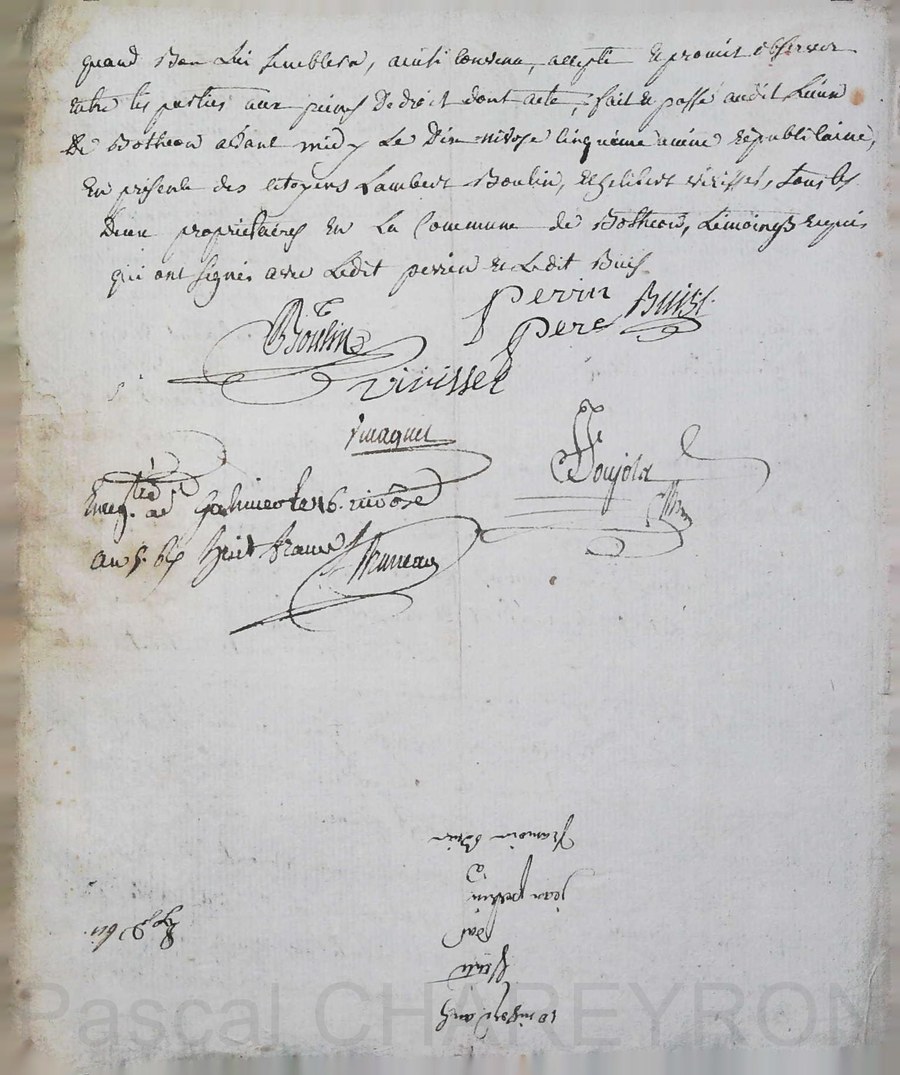 quand Bon Lui semblera, ainsi convenu, accepté et promit observer
entre les parties aux peines de droit dont acte, fait et passé audit Lieu
De Botheon avant midy Le Dix nivose cinquième année républicaine,
En présence des citoyens Lambert Boulin, et vivisset, tous les
Deux propriétaires en La Commune de Botheon, témoins requis
qui ont signés avec Ledit perrin et Ledit Buis
Perrin Buisi
père
Boulin
vivisset
Soujola
Enreg.tré à Galmier le 16. nivôse
an 5. huit francs
10 nivose an 5
Vente
par
jean perrin
à
françois Buis